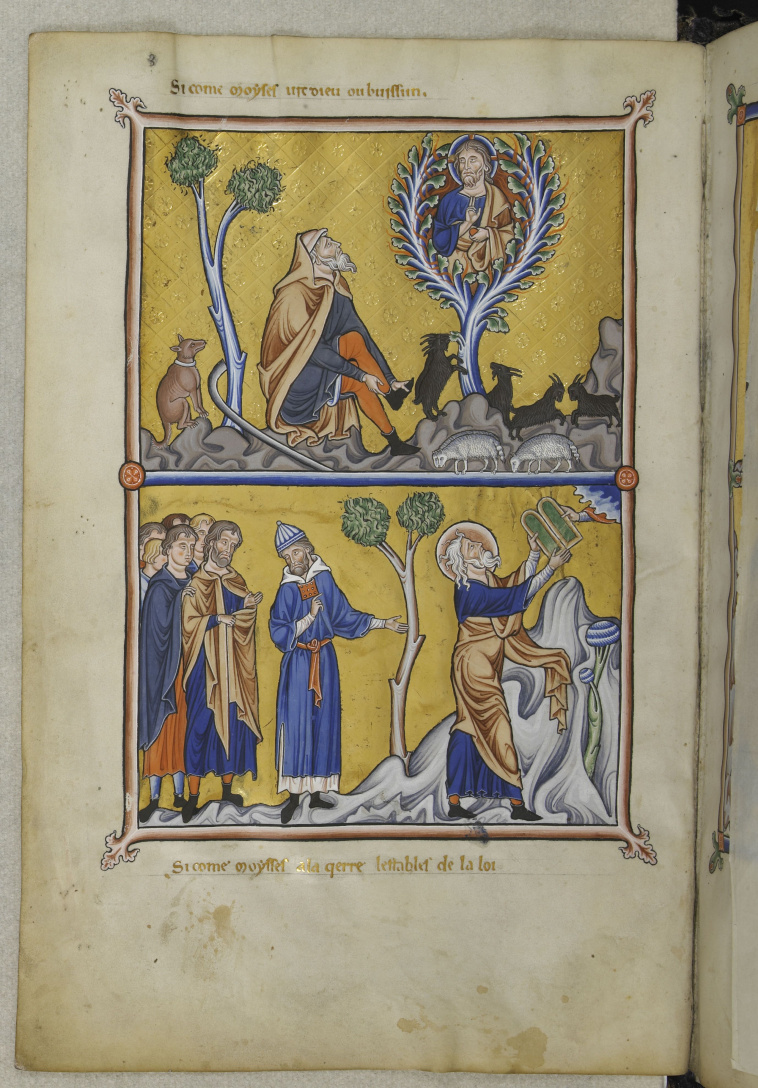 8
Si come moyses vit dieu ou buissun.
Si come moysses ala qerre lestables de la loi